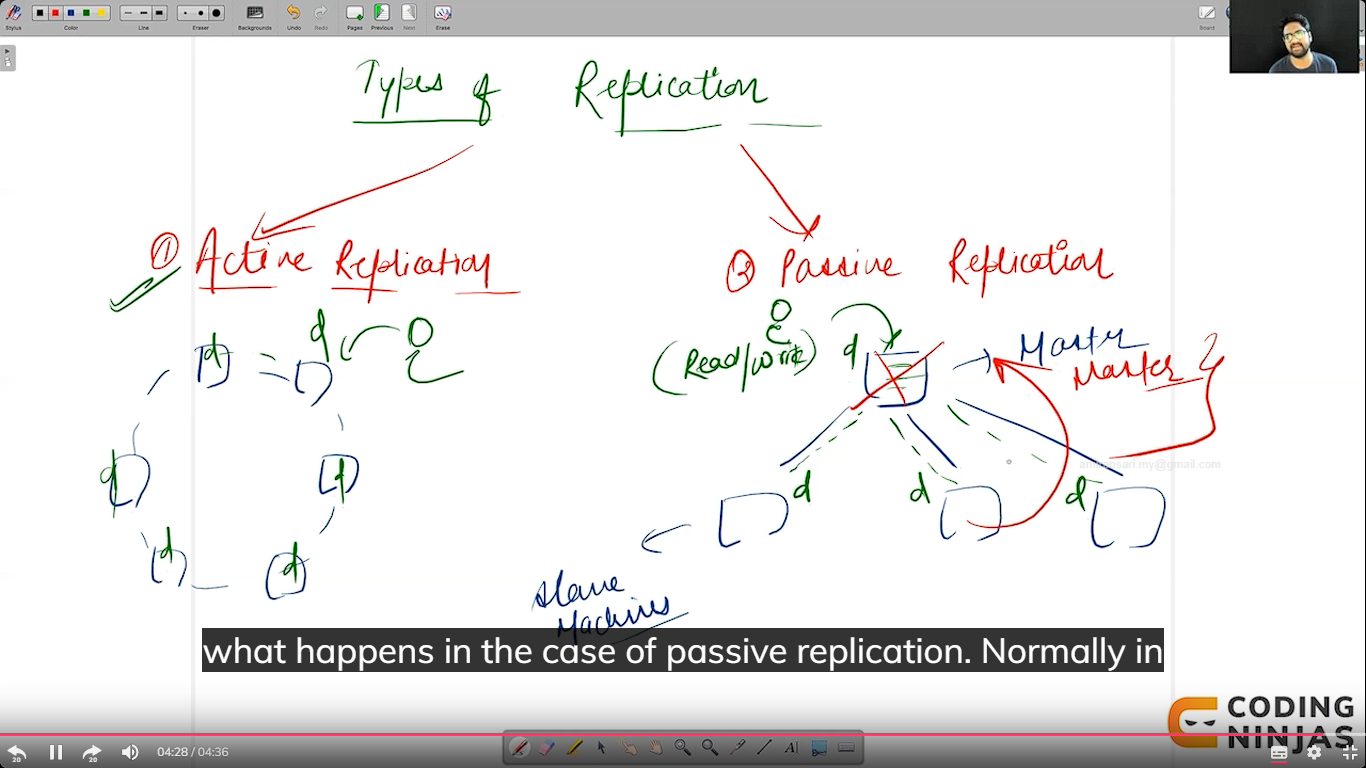 Stylus
Color
Line
Eraser
Backgrounds
Undo
Redo
Pages
Previous
Next
Erase
Board
Types of Replication
① Active Replication
② Passive Replication
d
d
d
d
d
d
(Read/Write)
d
Master
Master
d
d
d
Slave
Machines
what happens in the case of passive replication. Normally in
CODING
NINJAS
20
20
04:28 / 04:36